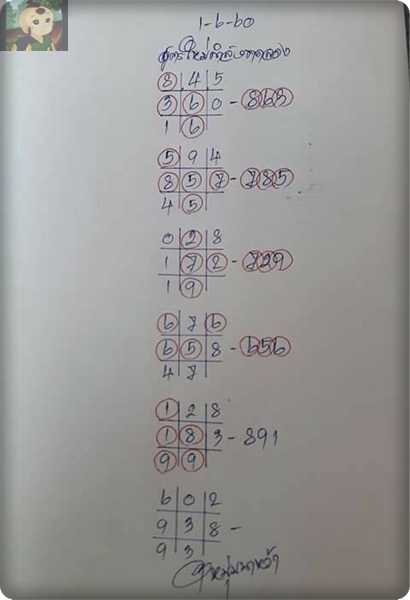 1-6-60
สูตรใหม่กำลังทดลอง
8 4 5
3 6 0 - 863
1 6
5 9 4
8 5 7 - 785
4 5
0 2 8
1 7 2 - 729
1 9
6 7 6
6 5 8 - 656
4 7
1 2 8
1 8 3 - 891
9 9
6 0 2
9 3 8 -
9 3